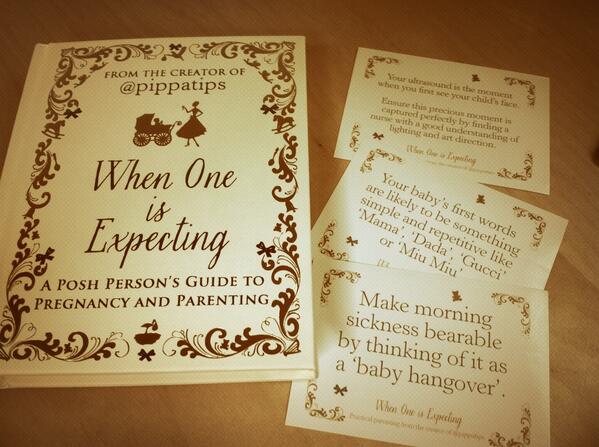 FROM THE CREATOR OF
@pippatips
When One
is
Expecting
A POSH PERSON'S GUIDE TO
PREGNANCY AND PARENTING
Your ultrasound is the moment
when you first see your child's face.
Ensure this precious moment is
captured perfectly by finding a
nurse with a good understanding of
lighting and art direction.
When One is Expecting
Your baby's first words
are likely to be something
simple and repetitive like
'Mama', 'Dada', 'Gucci'
or 'Miu Miu'
Make morning
sickness bearable
by thinking of it as
a 'baby hangover'.
When One is Expecting
Practical parenting from the creator of @pippatips